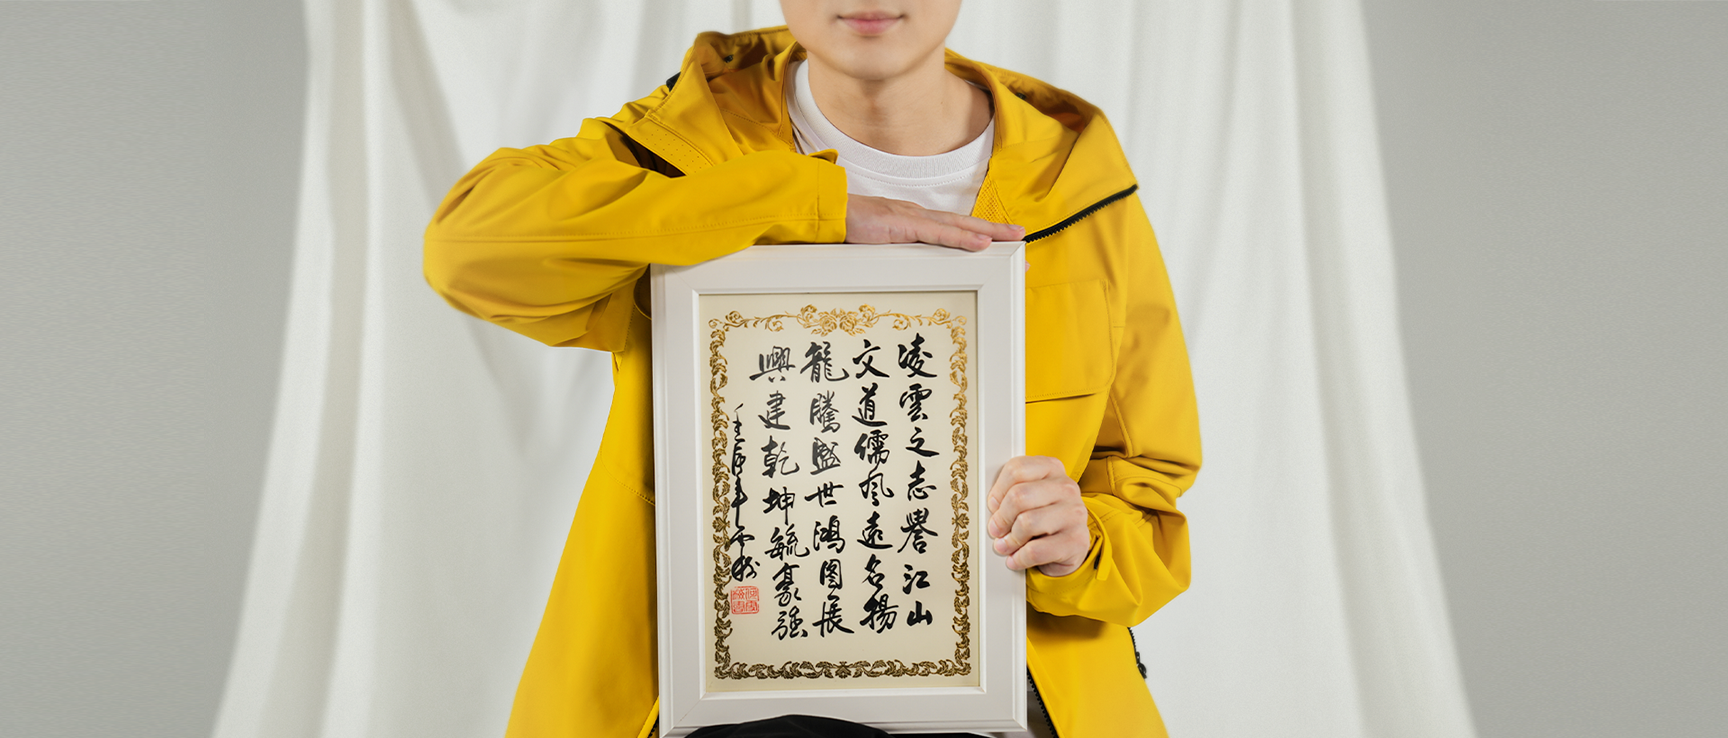 凌雲之志譽江山
文道儒風遠名揚
龍騰盛世鴻圖展
興建乾坤毓豪強